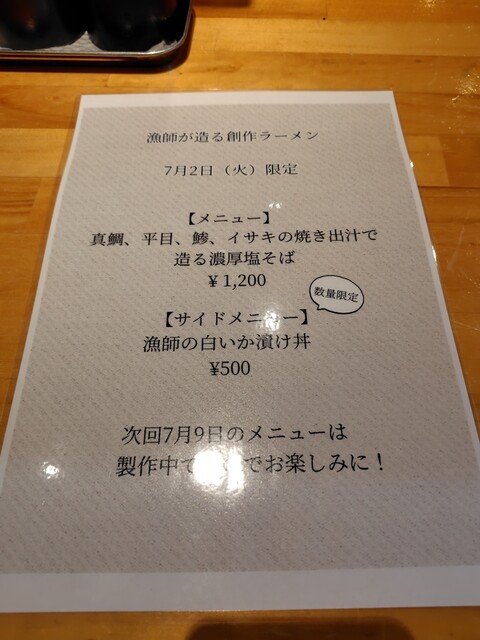 漁師が造る創作ラーメン
7月2日（火）限定
【メニュー】
真鯛、平目、鯵、イサキの焼き出汁で
造る濃厚塩そば
¥1,200
数量限定
【サイドメニュー】
漁師の白いか漬け丼
¥500
次回7月9日のメニューは
製作中で でお楽しみに！